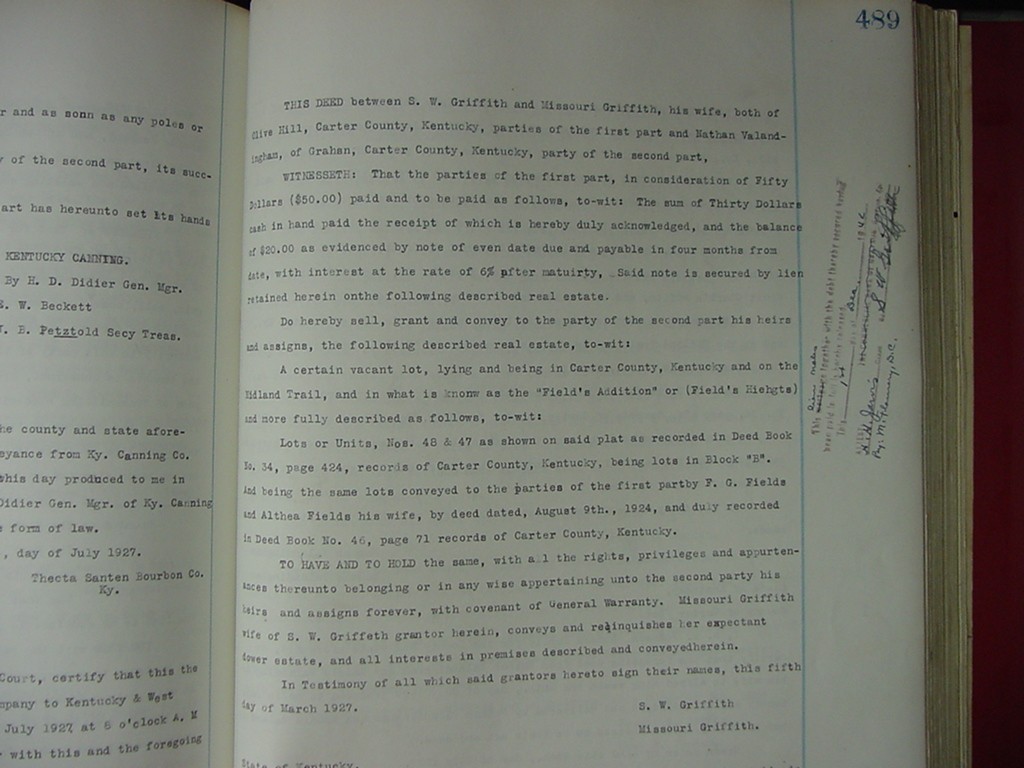 r and as sonn as any poles or
y of the second part, its succ-
art has hereunto set its hands
KENTUCKY CANNING.
By H. D. Didier Gen. Mgr.
E. W. Beckett
J. E. Petztold Secy Treas.
he county and state afore-
eyance from Ky. Canning Co.
this day produced to me in
Didier Gen. Mgr. of Ky. Canning
form of law.
, day of July 1927.
Thecta Santen Bourbon Co.
Ky.
Court, certify that this the
mpany to Kentucky & West
July 1927 at 8 o'clock A. M
with this and the foregoing
489
THIS DEED between S. W. Griffith and Missouri Griffith, his wife, both of
Olive Hill, Carter County, Kentucky, parties of the first part and Nathan Valand-
ingham, of Grahan, Carter County, Kentucky, party of the second part,
WITNESSETH: That the parties of the first part, in consideration of Fifty
Dollars ($50.00) paid and to be paid as follows, to-wit: The sum of Thirty Dollars
cash in hand paid the receipt of which is hereby duly acknowledged, and the balance
of $20.00 as evidenced by note of even date due and payable in four months from
date, with interest at the rate of 6% pfter matuirty, Said note is secured by lien
retained herein onthe following described real estate.
Do hereby sell, grant and convey to the party of the second part his heirs
and assigns, the following described real estate, to-wit:
A certain vacant lot, lying and being in Carter County, Kentucky and on the
Midland Trail, and in what is knonw as the "Field's Addition" or (Field's Hiehgts)
and more fully described as follows, to-wit:
Lots or Units, Nos. 48 & 47 as shown on said plat as recorded in Deed Book
No. 34, page 424, records of Carter County, Kentucky, being lots in Block "B".
And being the same lots conveyed to the parties of the first partby F. G. Fields
and Althea Fields his wife, by deed dated, August 9th., 1924, and duly recorded
in Deed Book No. 46, page 71 records of Carter County, Kentucky.
TO HAVE AND TO HOLD the same, with all the rights, privileges and appurten-
ances thereunto belonging or in any wise appertaining unto the second party his
heirs and assigns forever, with covenant of General Warranty. Missouri Griffith
wife of S. W. Griffeth grantor herein, conveys and relinquishes her expectant
dower estate, and all interests in premises described and conveyedherein.
In Testimony of all which said grantors hereto sign their names, this fifth
day of March 1927.
S. W. Griffith
Missouri Griffith.
State of Kentucky.
This together with the debt thereby secured having
1st day of Dec 1946
S W Griffith
D.C.